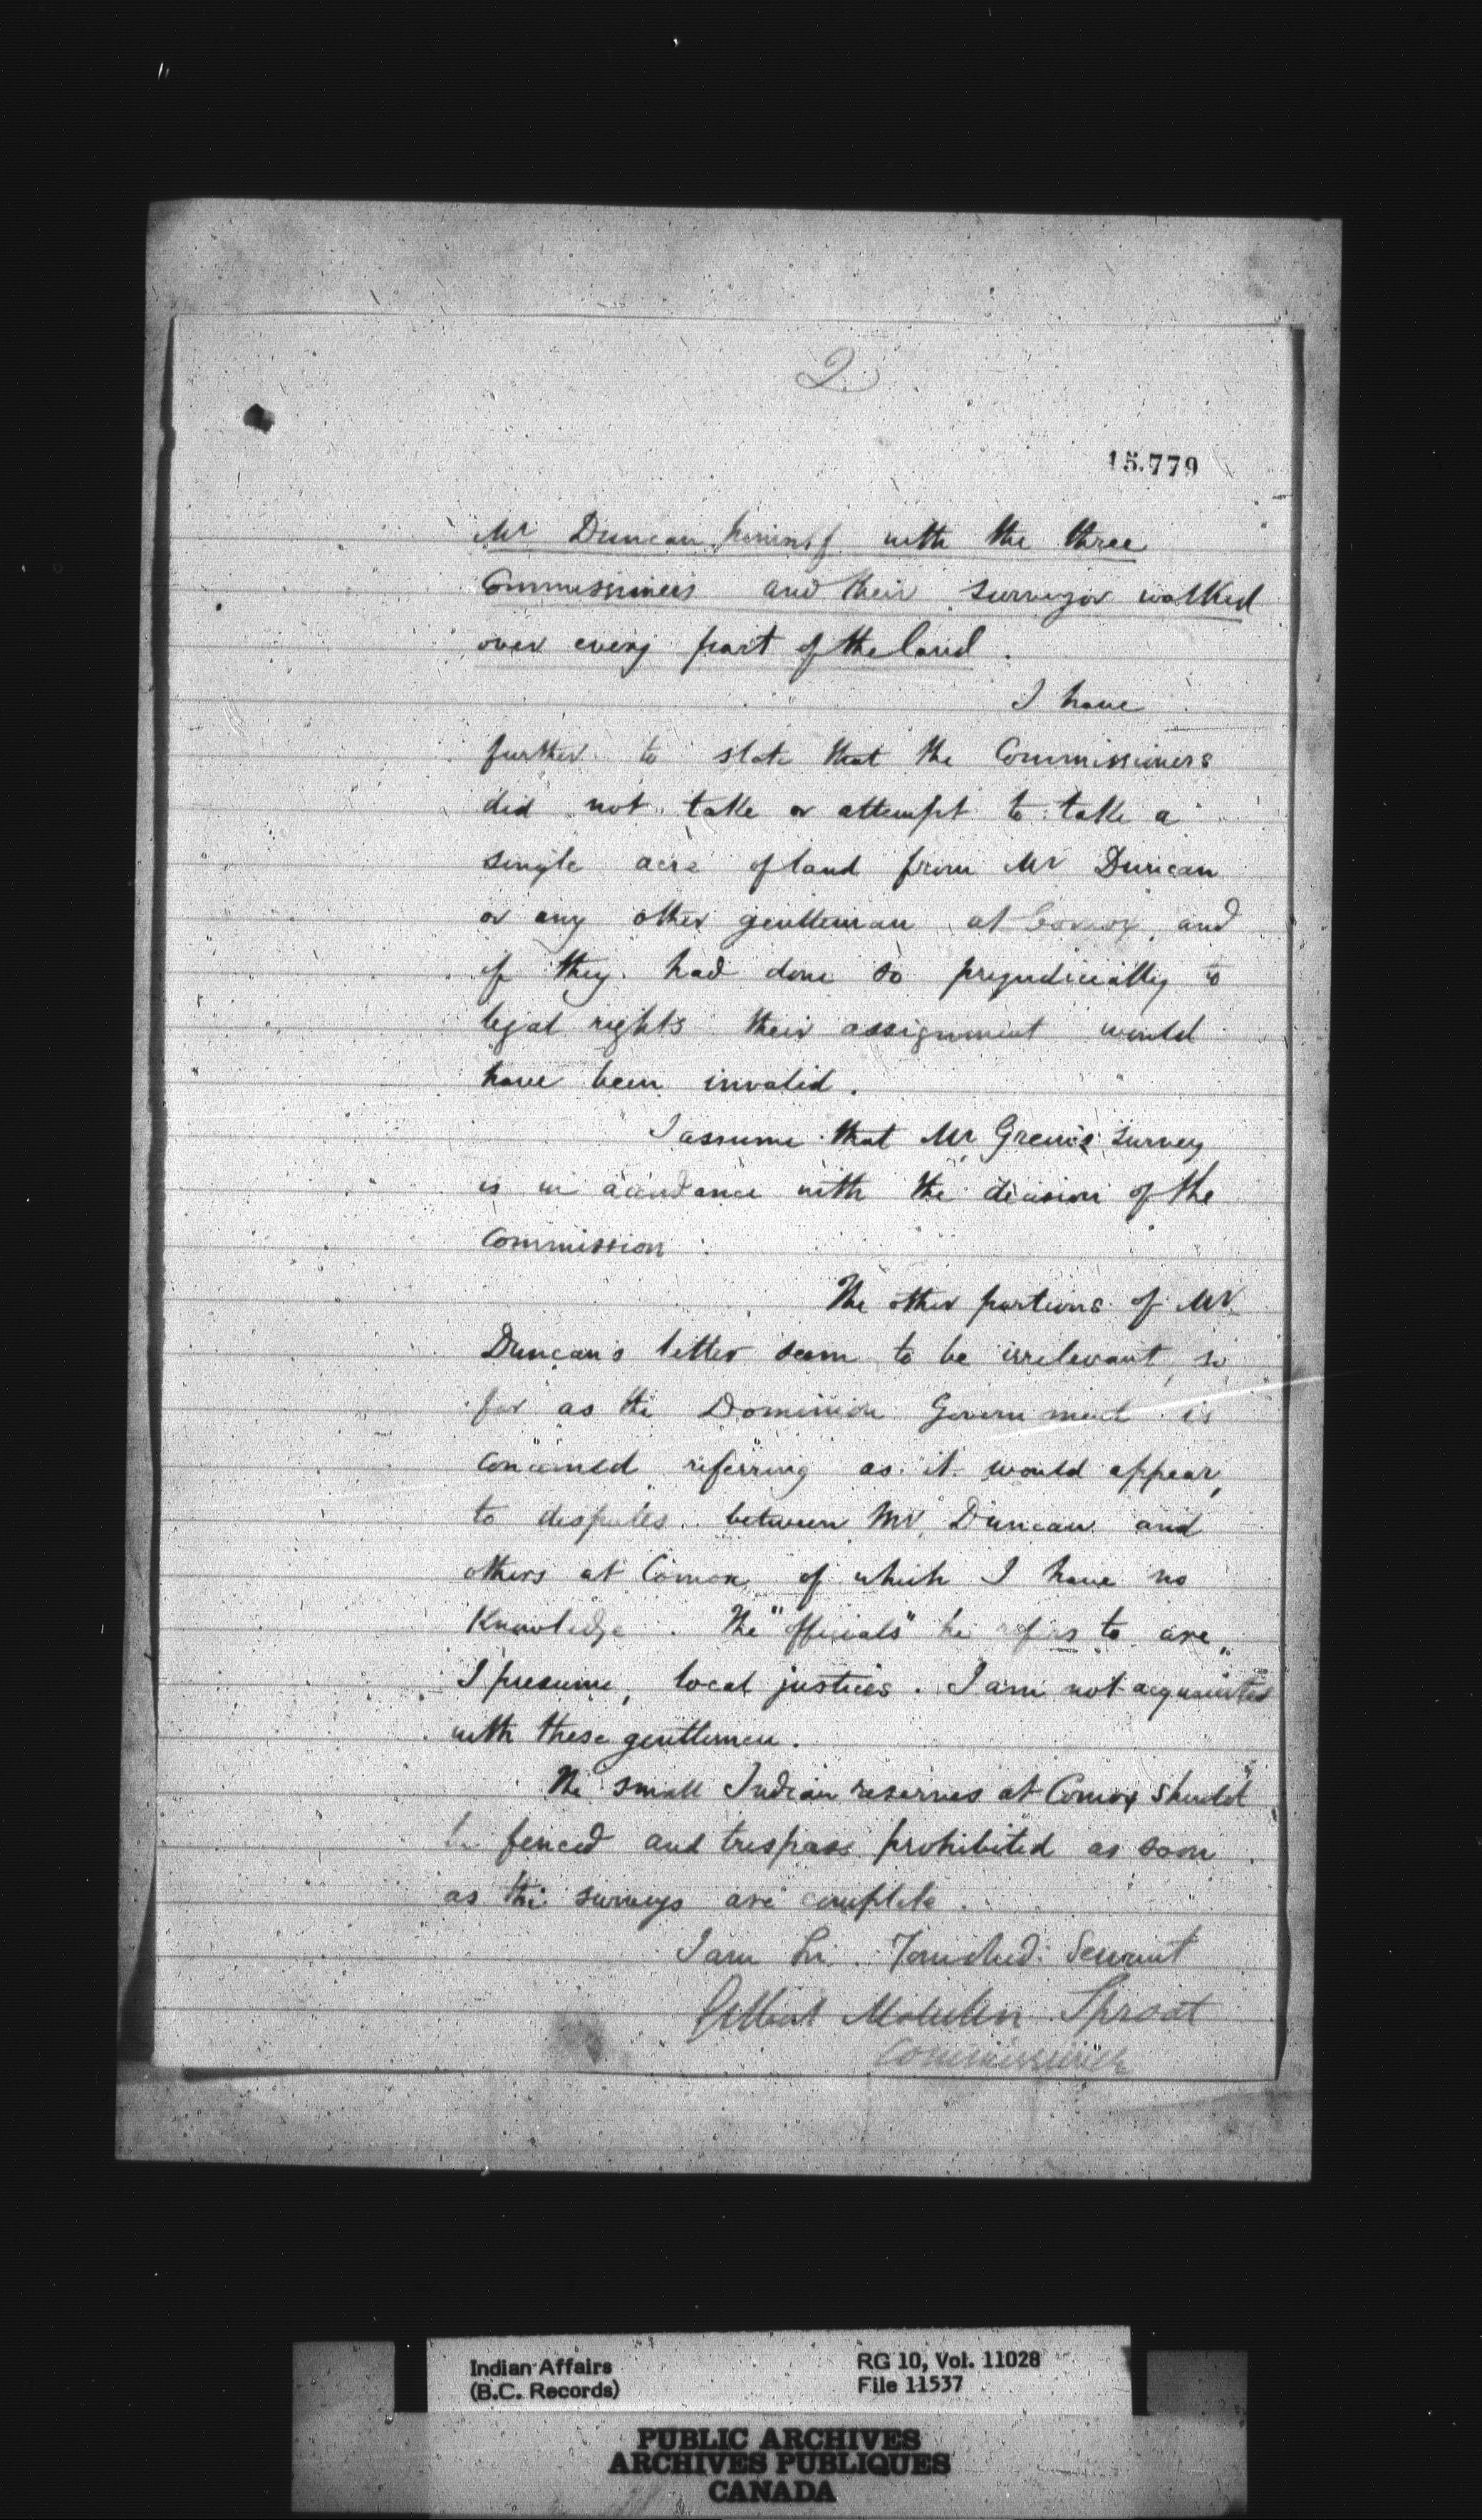 2
15.779
Mr Duncan himself with the three
Commissioners and their surveyor walked
over every part of the land.
I have
further to state that the Commissioners
did not take or attempt to take a
single acre of land from Mr Duncan
or any other gentleman at Comox, and
if they had done so prejudicially to
legal rights their assignment would
have been invalid.
I assume that Mr Green's survey
is in accordance with the decision of the
Commission.
The other portions of Mr
Duncan's letter seem to be irrelevant, so
far as the Dominion Government is
concerned referring as it would appear,
to disputes between Mr Duncan and
others at Comox of which I have no
Knowledge. The "officials" he refers to are,
I presume, local justices. I am not acquainted
with these gentlemen.
The small Indian reserves at Comox should
be fenced and trespass prohibited as soon
as the surveys are complete.
I am Sir Servant
Gilbert Malcolm Sproat
Commissioner
Indian Affairs
(B.C. Records)
RG 10, Vol. 11028
File 11537
PUBLIC ARCHIVES
ARCHIVES PUBLIQUES
CANADA